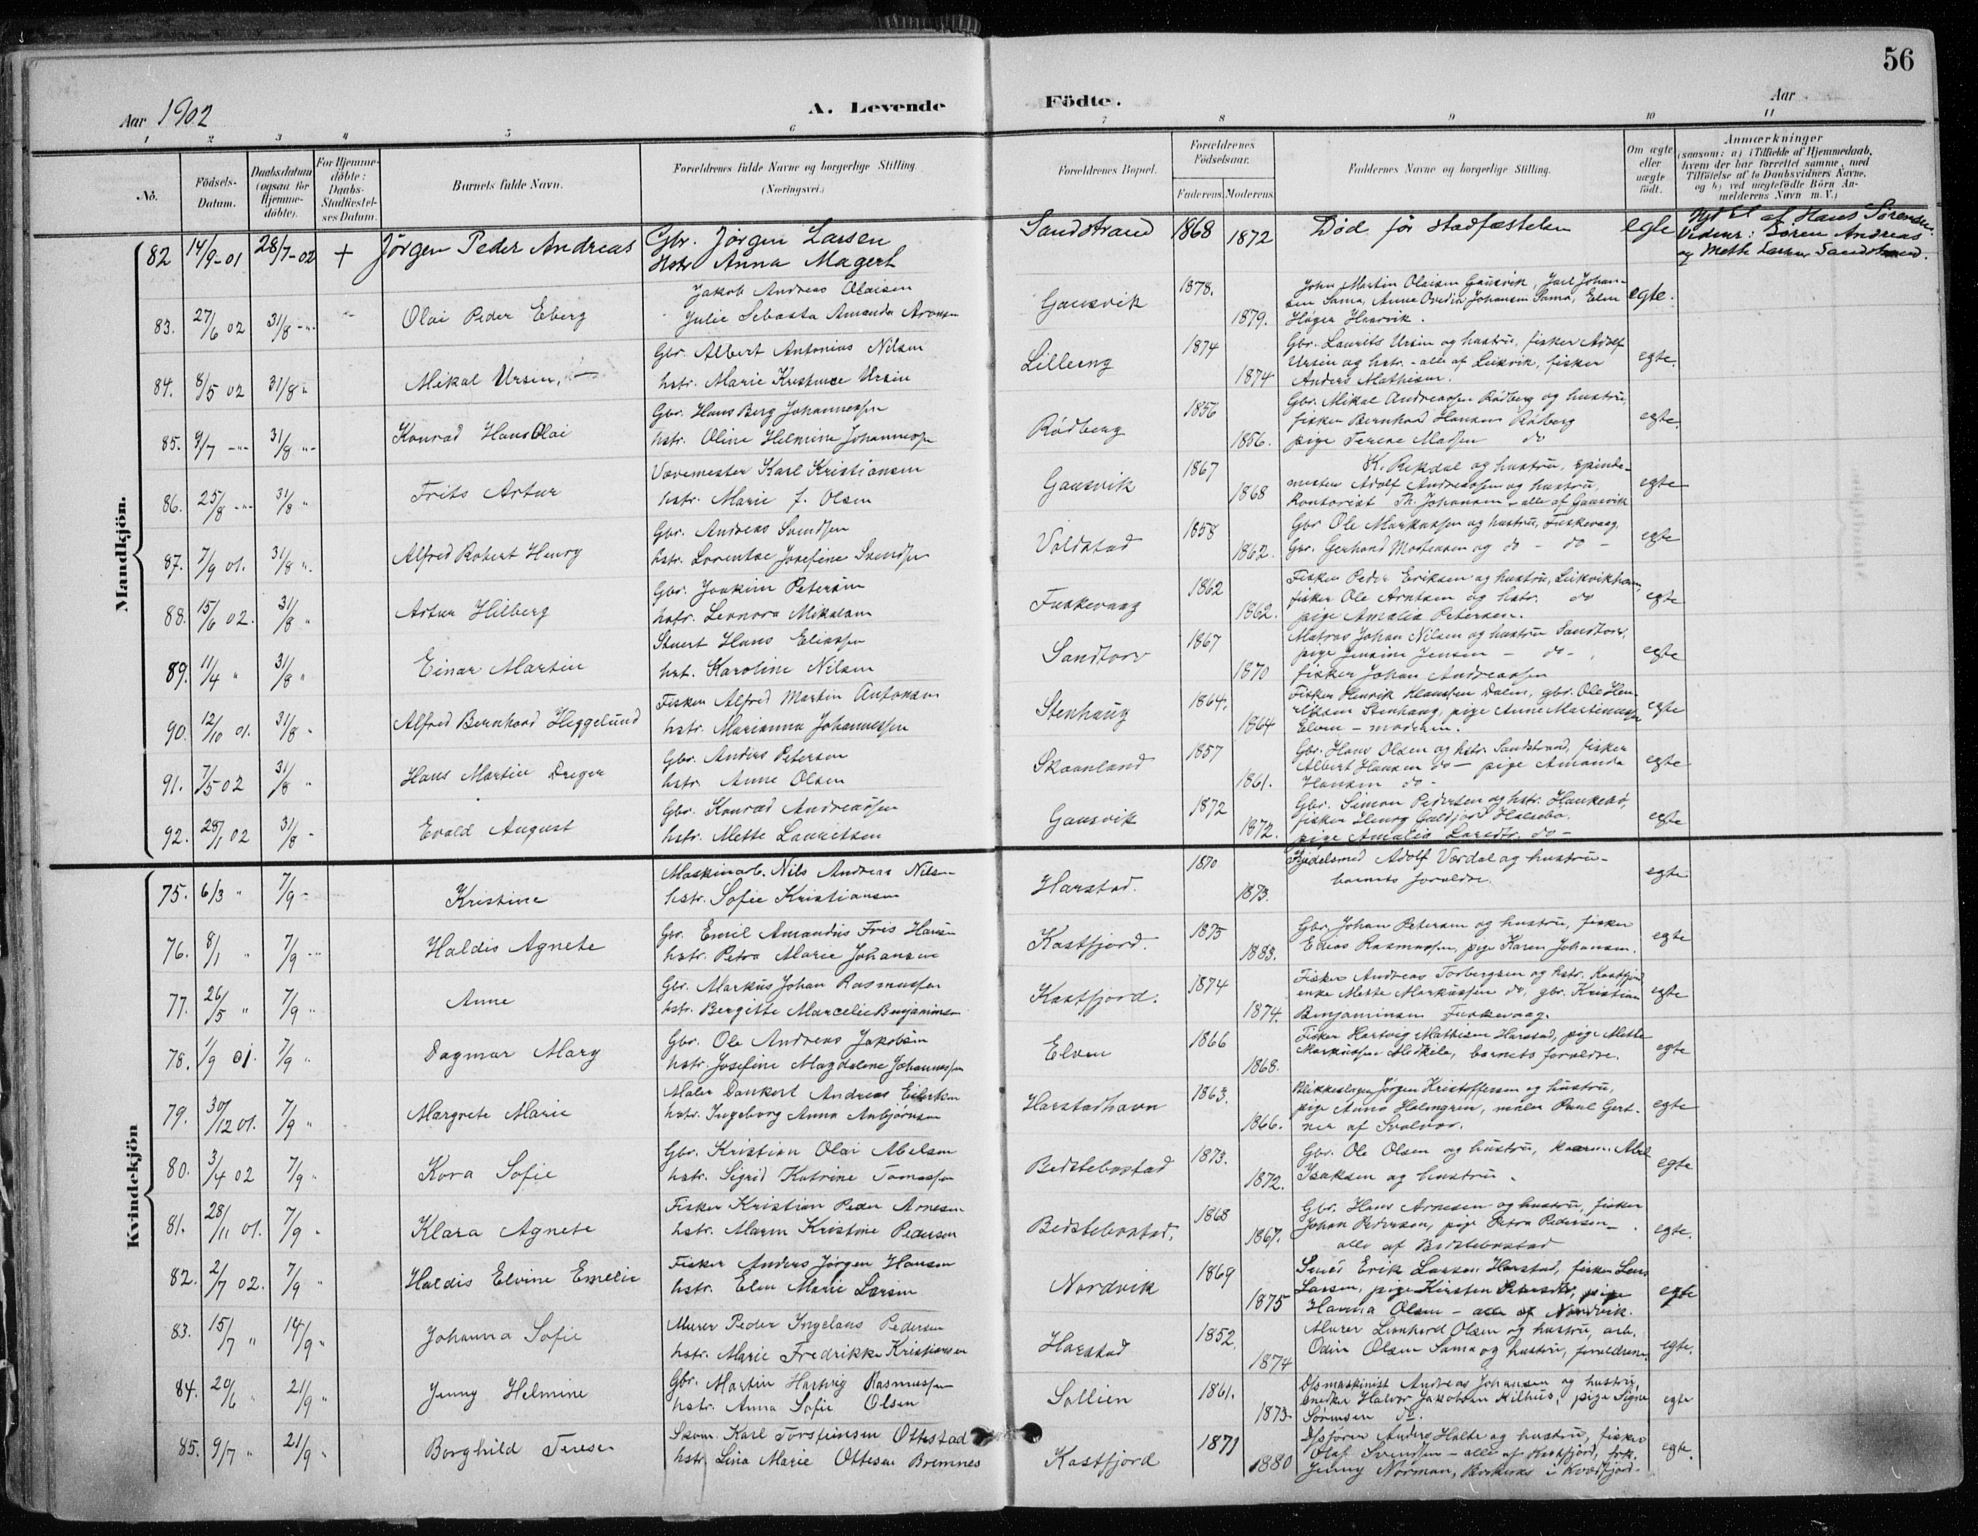 56
Aar 1902
A. Levende Födte.
Aar
1 2 3 4 5 6 7 8 9 10 11
No.
Födsels-Datum.
Daabsdatum (ogsaa for Hjemmedöbte).
For Hjemmedöbte: Daabs-Stadfæstelses Datum.
Barnets fulde Navn.
Forældrenes fulde Navne og borgerlige Stilling.
(Næringsvei.)
Forældrenes Bopæl.
Forældrenes Födselsaar.
Faderens. Moderens.
Faddernes Navne og borgerlige Stilling.
Om ægte eller uægte födt.
Anmærkninger
(saasom: a) i Tilfælde af Hjemmedaab, hvem der har forrettet samme, med Tilföielse af to Daabsvidners Navne, og b) ved uægtefödte Börn Anmelderens Navn m. V.)
Mandkjön.
82 14/9-01 28/7-02 + Jørgen Peder Andreas Gbr. Jørgen Larsen Sandstrand 1868 Död før stadfæstelsen egte
Hstr Anna Magert 1872
af Hans Sørensen.
Vidner: Søren Andreas
og Mette Sandstrand.
83. 27/6 02 31/8 Olai Peder Eberg Jakob Andreas Olaisen Gausvik 1878. John Martin Olaisen Gausvik, egte.
Julie Amanda 1879.
84. 8/5 02 31/8 Mikal Ursin, Gbr. Albert Antonius Nilsen Lilleeng 1874 Gbr. Laurits Ursin og hustru, fisker Adolf egte.
hstr. Marie Ursin 1874 Ursin og hstr. - alle af Leikvik, fisker
Anders Mathisen.
85. 9/7 31/8 Konrad Hans Olai Gbr. Hans Berg Johannessen Rödberg 1856 Gbr. Mikal Andreassen Rödberg og hustru, egte.
hstr. Oline Helmine Johannessen 1856. fisker Bernhard Hansen Röberg
pige Terese Madsen do
86. 25/8 31/8 Frits Artur Vævemester Karl Kristiansen Gausvik 1867 K. Rekdal og hustru, spinde- egte
hstr. Marie J. Olsen 1868 mester Adolf Andreassen og hustru,
Kontorist Th. Johansen - alle af Gausvik
87. 7/9 01. 31/8 Alfred Robert Henry Gbr. Andreas Svendsen Voldstad 1858 Gbr Ole Markussen og hustru, Fuskevaag egte
hstr. Lorentse Josefine Svendsen 1862. Gbr. Gerhard Mortensen og do - do -
88. 15/6 02. 31/8 Artur Hilberg Gbr. Joakim Petersen Fuskevaag 1862 Fisker Peder Eriksen og hustru, egte
hstr. Leonora Mikalsen 1862. fisker Ole Arntsen og hstr. do
pige Amalia Petersen.
89. 11/4 " 31/8 " Einar Martin Stuert Hans Eliassen Sandtorv 1867 Matros Johan Nilsen og hustru Sandtorv, egte
hst. Karoline Nilsen 1870 pige Jensine Jensen - do -,
fisker Johan Andreassen
90. 12/10 01. 31/8 " Alfred Bernhard Heggelund Fisker Alfred Martin Antonsen Stenhaug 1864. Fisker Henrik Klaussen Dalen, gbr. Ole Hen- egte
hstr. Marianna Johannessen 1864 riksen Stenhaug, pige Anne Martinussen
Elven - moderen.
91. 7/5-02 31/8 " Hans Martin Dreyer Gbr. Anders Peterson Skaanland 1857 Gbr. Hans Olsen og hstr. Sandstrand, fisker egte
hstr. Anne Olsen 1861. Albert Hansen do - pige Amanda
Hansen do -
92. 28/1 02 31/8 - Evald August Gbr. Konrad Andreassen Gausvik 1872 Gbr. Simon Pedersen og hstr. egte
hstr. Mette Lauritsen 1872. fisker Henry
pige Amalia do -
Kvindekjön
75. 6/3 " 7/9 - Kristine Maskinarb. Nils Andreas Nilsen Harstad. 1870 Adolf Værdal og hustru - egte
hstr. Sofie Kristiansen 1873. barnets forældre.
76. 8/1 " 7/9 Haldis Agnete Gbr. Emil Amandus Fris Hansen Kastfjord. 1875 Gbr. Johan Petersen og hustru, fisker egte
hstr. Petra Marie Johansen 1883. Edias Rasmussen, pige Karen Johansen.
77. 26/5 " 7/9 " Anne Gbr. Markus Johan Rasmussen Kastfjord. 1874 Fisker Andreas Torbergsen og hstr. Kastfjord egte
hstr. Bergitte Marcelie Benjaminsen 1874. enke Mette Markussen do, gbr. Kristian
Benjaminsen Fuskevaag.
78. 1/9 01. 7/9 " Dagmar Mary Gbr. Ole Andreas Jakobsen Elven 1866 Fisker Hartvig Mathisen Harstad, pige Mette egte
hstr. Josefine Magdalene Johannessen 1868. Markussen Medkila, barnets forældre.
79. 30/12 01. 7/9 " Margrete Marie Maler Dankert Andreas Eilertsen Harstadhavn 1863. Blikkenslager Jørgen Kristoffersen og hustru, egte
hstr. Ingeborg Anna Anbjörnsen 1866. pige Anna Holmgren, maler Paul Gert-
ner af Svolvær.
80. 3/4 02 7/9 " Kora Sofie Gbr. Kristian Olai Abelsen Bedstebostad 1873. Gbr. Ole Olsen og hustru, egte
hstr. Sigrid Katrine Tomassen 1872. Isaksen og hustru.
81. 28/11 01. 7/9 " Klara Agnete Fisker Kristian Peder Arnesen Bedstebostad. 1868 Gbr. Hans Arnesen og hustru, fisker egte.
hstr. Maren Kristine Pedersen 1867. Johan Pedersen, pige Petra Pedersen -
alle af Bedstebostad
82. 2/7 02. 7/9 " Haldis Elvine Emelie Fisker Anders Jørgen Hansen Nordvik 1869 Smed Erik Larsen Harstad, fisker Lars egte
hstr. Elen Marie Larsen 1875 Larsen, pige Kirsten Petersen, pige
Hanna Olsen - alle af Nordvik.
83. 15/7 " 14/9 " Johanna Sofie Murer Peder Ingelaus Pedersen Harstad 1852. Murer Leonhard Olsen og hustru, arb. egte.
hstr. Marie Fredrikke Kristiansen 1874 Odin Olsen Sama og hustru, forældrene.
84. 20/6 " 21/9 " Jenny Helmine Gbr. Martin Hartvig Rasmussen Sollien 1861. Dsmaskinist Andreas Johansen og hustru, egte
hstr. Anna Sofie Olsen 1873. snedker Halvor Jakobsen Kilhus, pige Signe
Sørensen do.
85. 9/7 " 21/9 " Borghild Terese Skom. Karl Torsteinsen Ottestad Kastfjord 1871 Anders Holte og hustru, fisker egte.
hstr. Lina Marie Ottesen Bremnes 1880 Olaf Svendsen - alle af Kastfjord, frk.
Jenny Norman, i Kvæfjord.